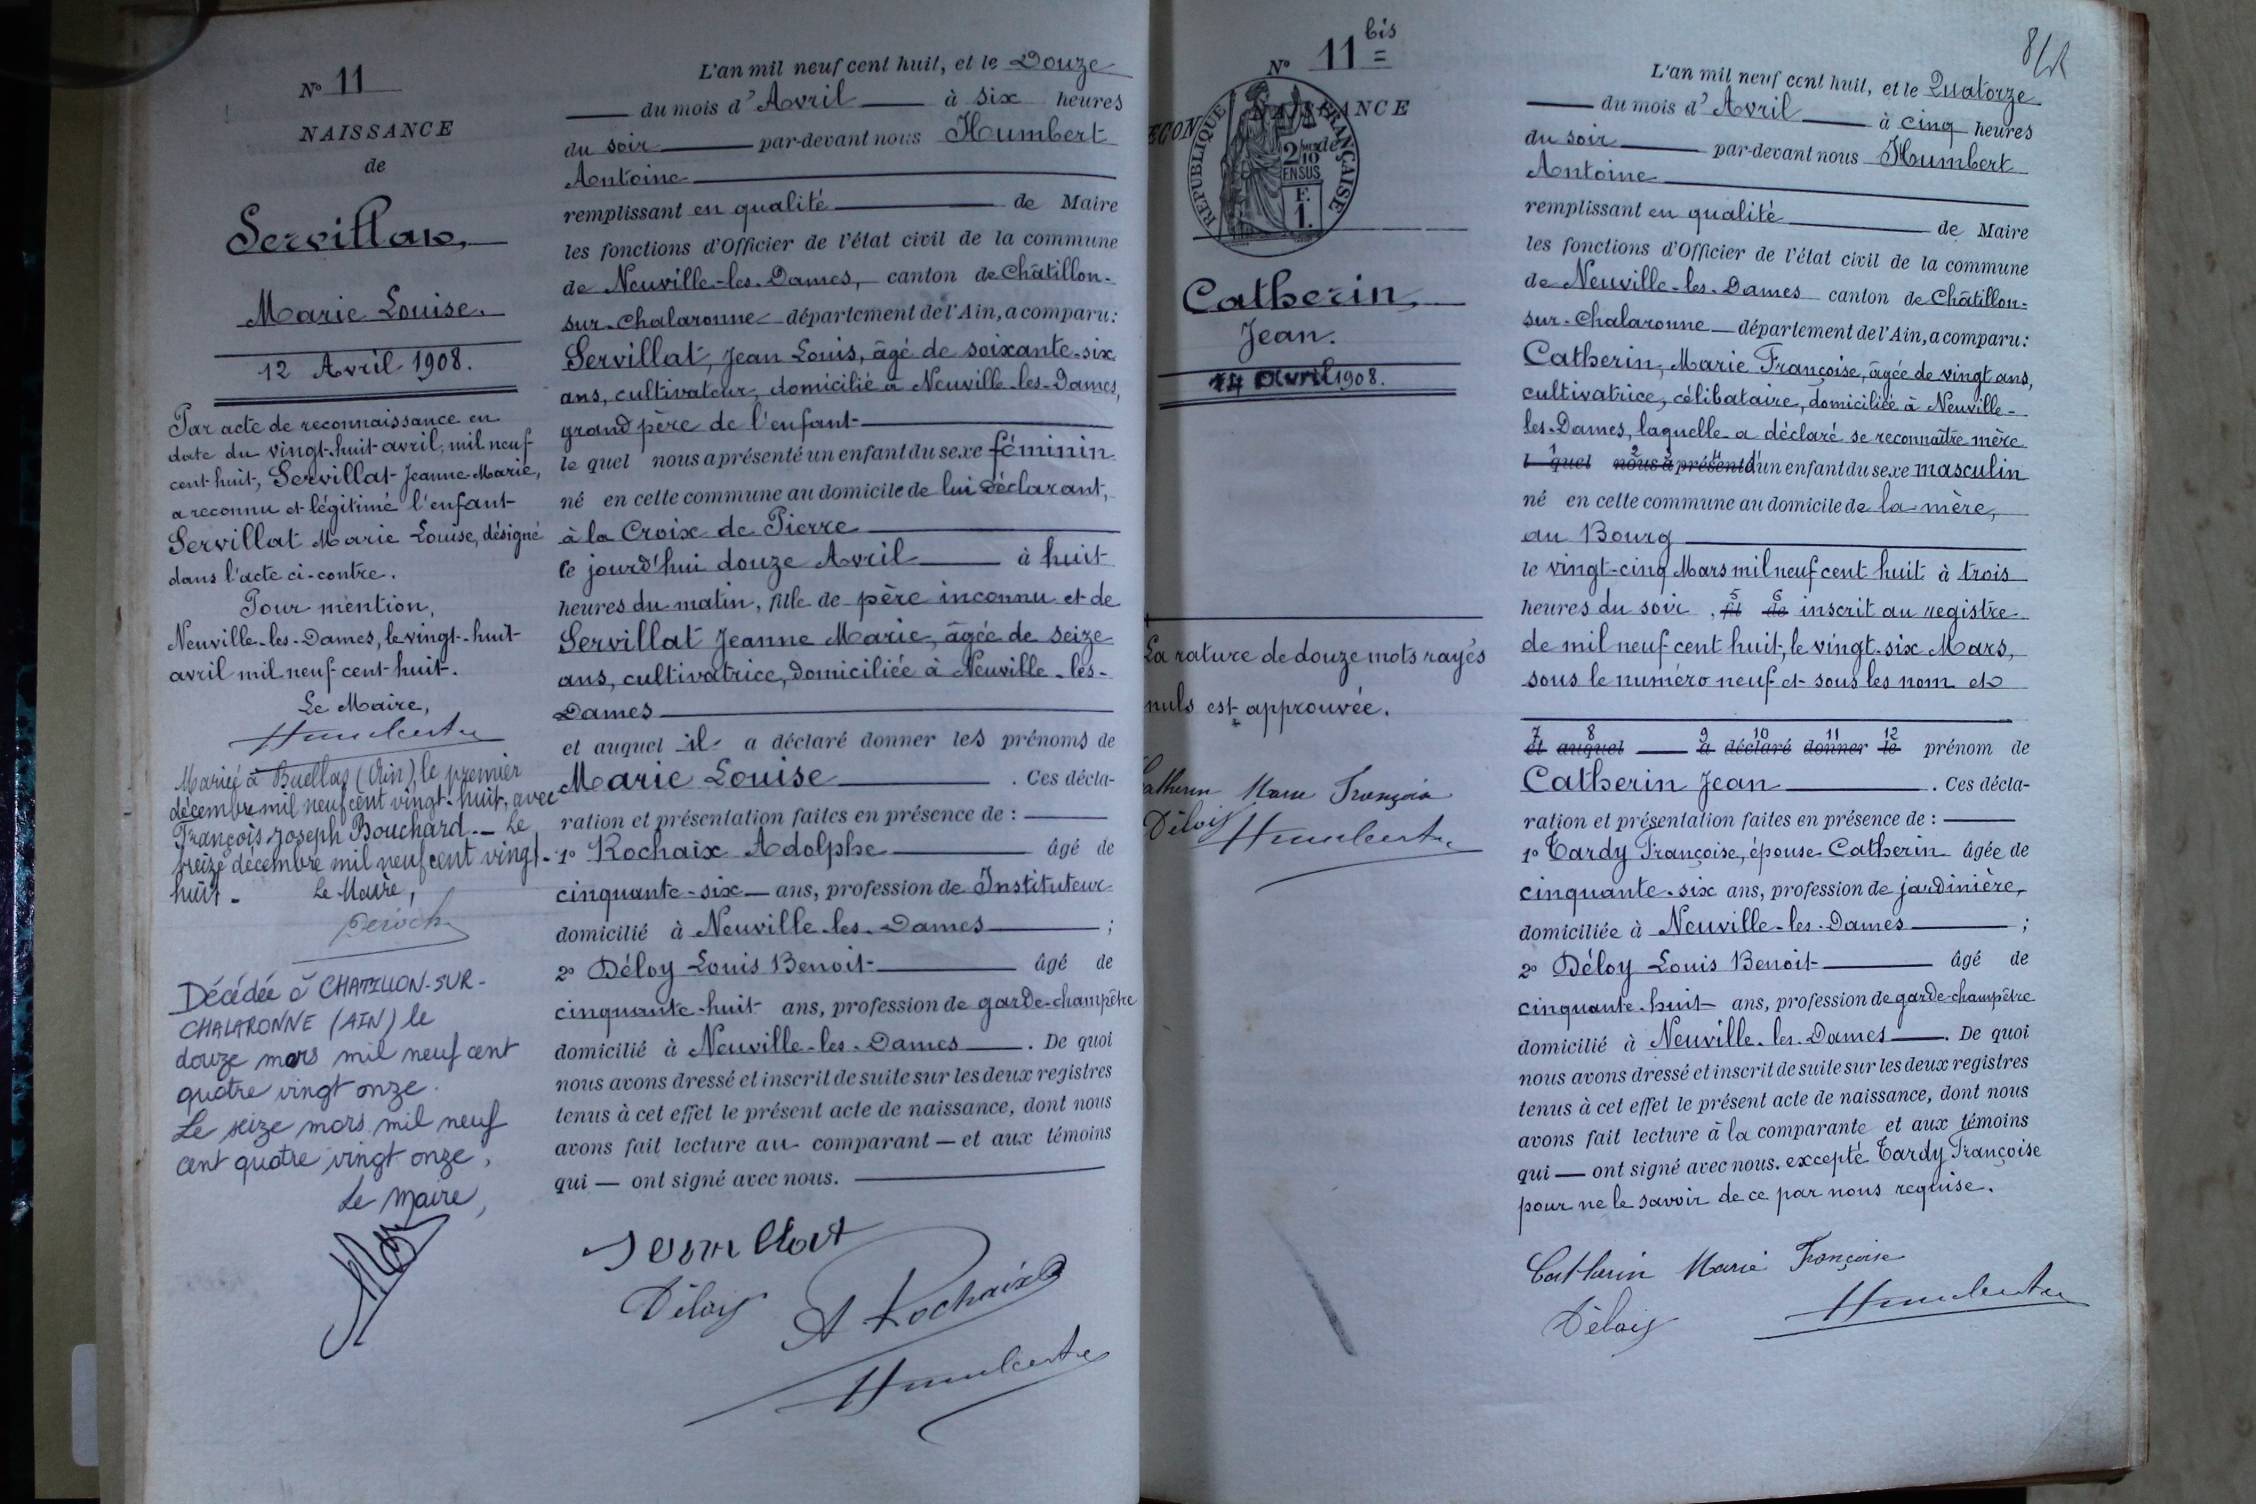 N° 11
NAISSANCE
de
Servillat,
Marie Louise.
12 Avril 1908.
Par acte de reconnaissance en
date du vingt-huit avril, mil neuf
cent huit, Servillat Jeanne-Marie,
a reconnu et légitimé l'enfant
Servillat Marie Louise, désigné
dans l'acte ci-contre.
Pour mention,
Neuville-les-Dames, le vingt-huit
avril mil neuf cent huit.
Le Maire,
Humbert
Mariée à Buellas (Ain), le premier
décembre mil neuf cent vingt-huit, avec
François Joseph Bouchard. _ Le
treize décembre mil neuf cent vingt-
huit. Le Maire,
Décédée à CHATILLON-SUR-
CHALARONNE (AIN) le
douze mars mil neuf cent
quatre vingt onze.
Le seize mars mil neuf
cent quatre vingt onze,
Le Maire,
L'an mil neuf cent huit, et le Douze
du mois d'Avril à six heures
du soir par-devant nous Humbert
Antoine
remplissant en qualité de Maire
les fonctions d'Officier de l'état civil de la commune
de Neuville-les-Dames, canton de Châtillon-
sur-Chalaronne département de l'Ain, a comparu:
Servillat, Jean Louis, âgé de soixante-six
ans, cultivateur, domicilié à Neuville-les-Dames,
grand père de l'enfant
le quel nous a présenté un enfant du sexe féminin
né en cette commune au domicile de lui déclarant,
à la Croix de Pierre
le jourd'hui douze Avril à huit
heures du matin, fille de père inconnu et de
Servillat Jeanne Marie, âgée de seize
ans, cultivatrice, domiciliée à Neuville-les-
Dames
et auquel il a déclaré donner les prénoms de
Marie Louise . Ces décla-
ration et présentation faites en présence de :
1° Rochaix Adolphe âgé de
cinquante-six ans, profession de Instituteur
domicilié à Neuville-les-Dames ;
2° Déloy Louis Benoit âgé de
cinquante-huit ans, profession de garde-champêtre
domicilié à Neuville-les-Dames . De quoi
nous avons dressé et inscrit de suite sur les deux registres
tenus à cet effet le présent acte de naissance, dont nous
avons fait lecture au comparant — et aux témoins
qui — ont signé avec nous.
Servillat
Déloy
A Rochaix
Humbert
N° 11 bis
NAISSANCE
de
RÉPUBLIQUE FRANÇAISE
2/10
EN SUS
F.
1.
Catherin,
Jean.
14 avril 1908.
La rature de douze mots rayés
nuls est approuvée.
Catherin Marie Françoise
Déloy Humbert
L'an mil neuf cent huit, et le Quatorze
du mois d'Avril à cinq heures
du soir par-devant nous Humbert
Antoine
remplissant en qualité de Maire
les fonctions d'Officier de l'état civil de la commune
de Neuville-les-Dames canton de Châtillon-
sur-Chalaronne département de l'Ain, a comparu:
Catherin, Marie Françoise, âgée de vingt ans,
cultivatrice, célibataire, domiciliée à Neuville-
les-Dames, laquelle a déclaré se reconnaître mère
1 2 3 4
l quel nous a présenté d'un enfant du sexe masculin
né en cette commune au domicile de la mère,
au Bourg
le vingt-cinq Mars mil neuf cent huit à trois
5 6
heures du soir, fil de inscrit au registre
de mil neuf cent huit, le vingt-six Mars,
sous le numéro neuf et sous les nom et
7 8 9 10 11 12
et auquel a déclaré donner le prénom de
Catherin Jean . Ces décla-
ration et présentation faites en présence de :
1° Tardy Françoise, épouse Catherin âgée de
cinquante-six ans, profession de jardinière,
domiciliée à Neuville-les-Dames ;
2° Déloy Louis Benoit âgé de
cinquante-huit ans, profession de garde-champêtre
domicilié à Neuville-les-Dames . De quoi
nous avons dressé et inscrit de suite sur les deux registres
tenus à cet effet le présent acte de naissance, dont nous
avons fait lecture à la comparante et aux témoins
qui — ont signé avec nous. excepté Tardy Françoise
pour ne le savoir de ce par nous requise.
Catherin Marie Françoise
Déloy
Humbert